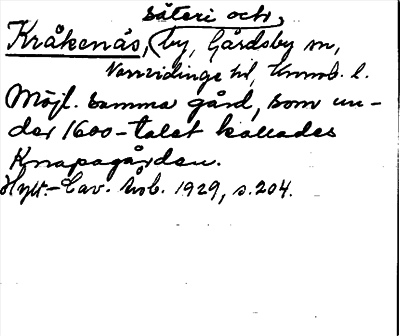 säteri och
Kråkenås, by, Gårdsby sn,
Norrvidinge hd, Kronob. l.
Möjl. samma gård, som un-
der 1600-talet kallades
Knapagården.
Hylt.-Cav. hsb. 1929, s. 204.